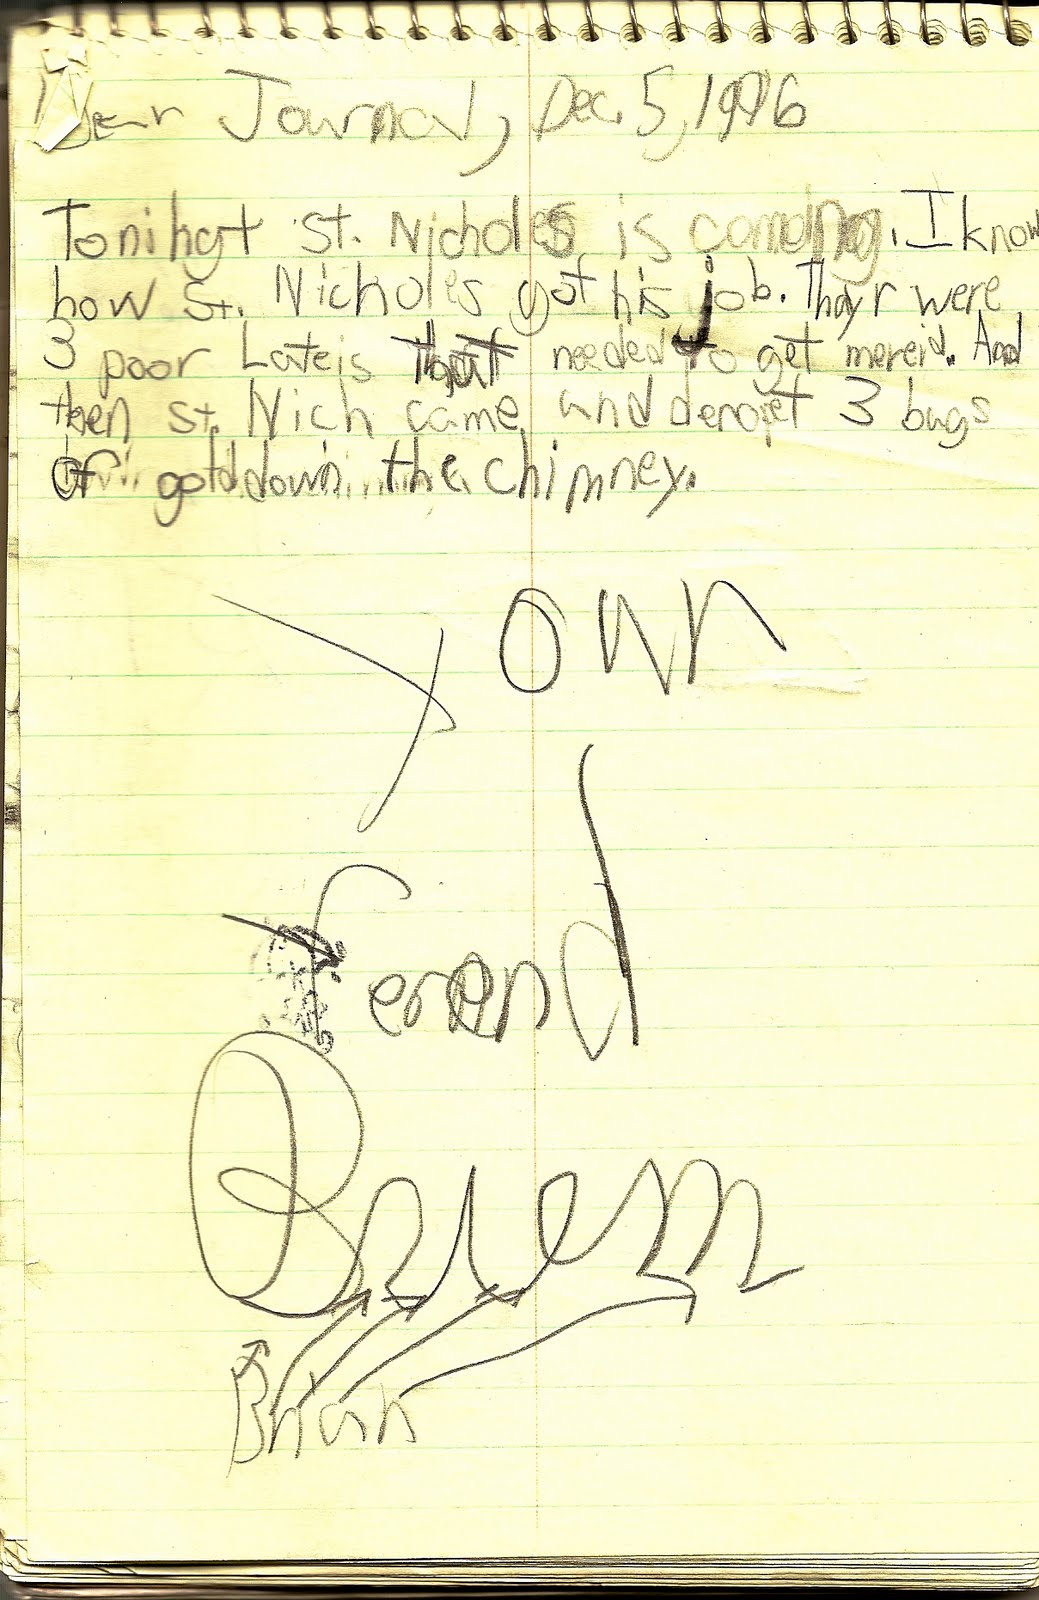 Dear Journal, Dec. 5, 1996
Tonihgt St. Nicholes is comding. I know
how St. Nicholes got his job. Thayr were
3 poor Lateis that needed to get mereid. And
then St. Nich came and deropet 3 bags
of gold down the chimney.
Your
ferend
Brien
Brian